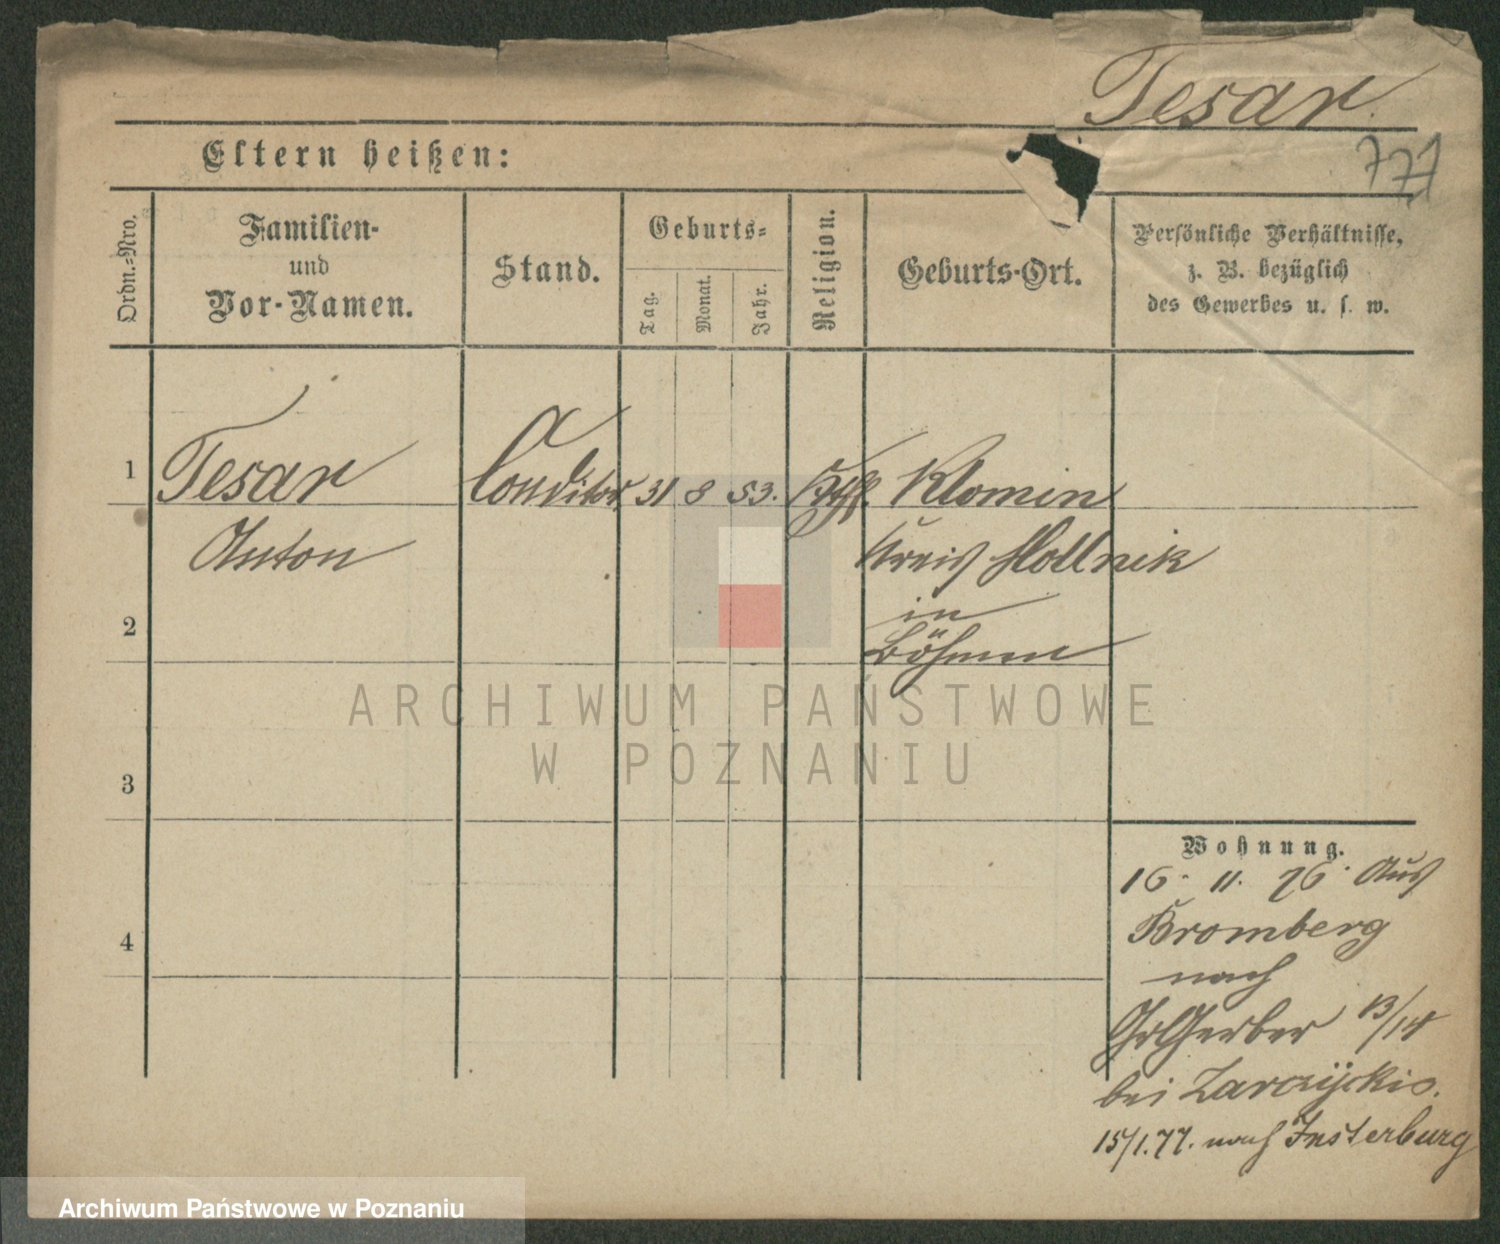 Tesar
777
Eltern heißen:
Ordn.-Nro.
Familien-
und
Vor-Namen.
Stand.
Geburts-
Tag.
Monat.
Jahr.
Religion.
Geburts-Ort.
Persönliche Verhältnisse,
z. B. bezüglich
des Gewerbes u. s. w.
1 Tesar Conditor 31 8 53. Klomin
Anton Kreis Hollnik
in
2 Böhmen
ARCHIWUM PAŃSTWOWE
W POZNANIU
3
Wohnung.
16. 11. 76. Aus
4 Bromberg
nach
GrGerber 13/14
bei
15/1.77. nach Insterburg
Archiwum Państwowe w Poznaniu